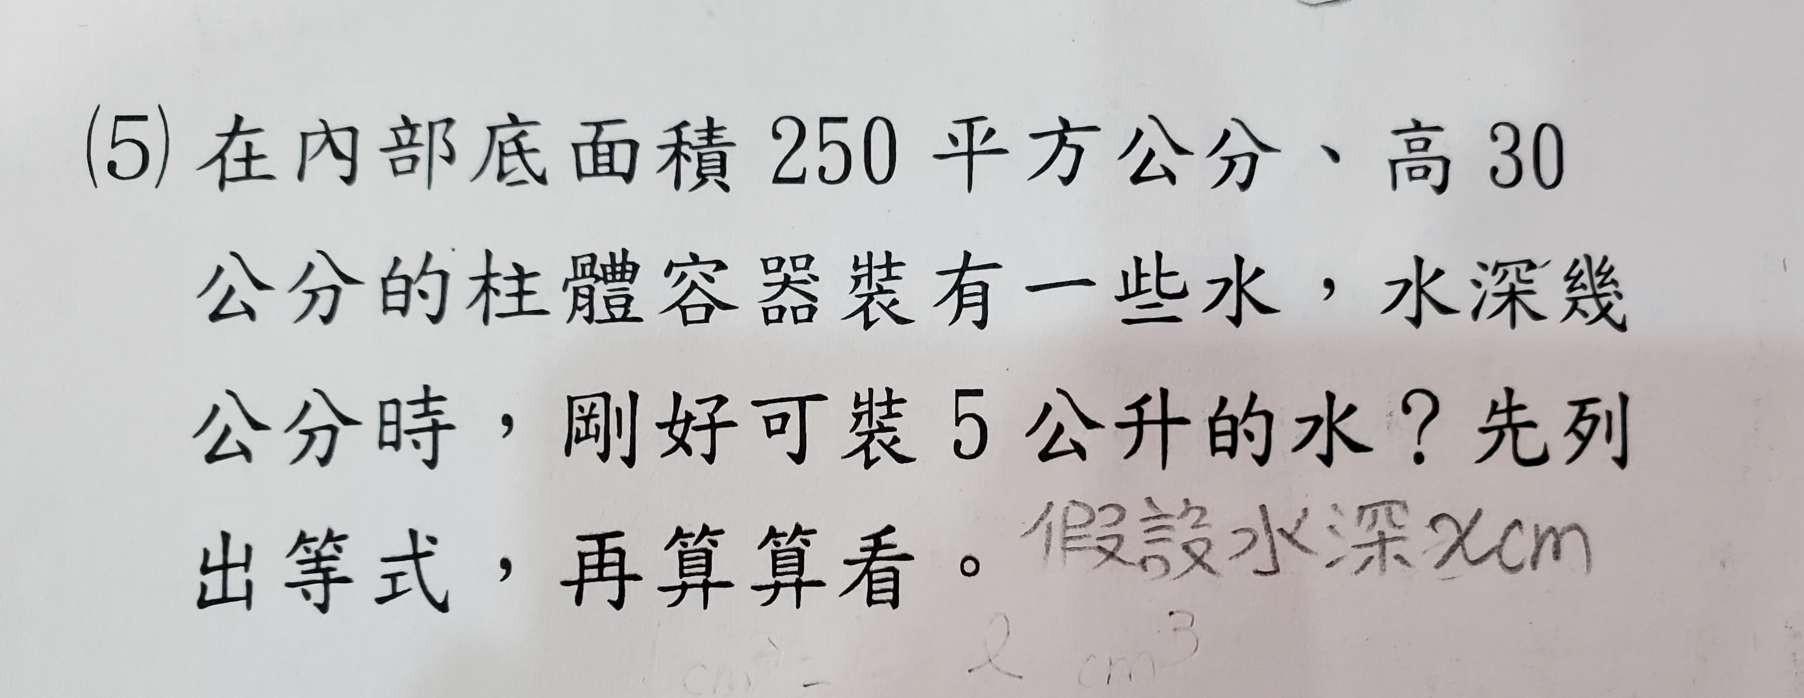 (5) 在內部底面積 250 平方公分、高 30
公分的柱體容器裝有一些水，水深幾
公分時，剛好可裝 5 公升的水？先列
出等式，再算算看。假設水深xcm
l cm³